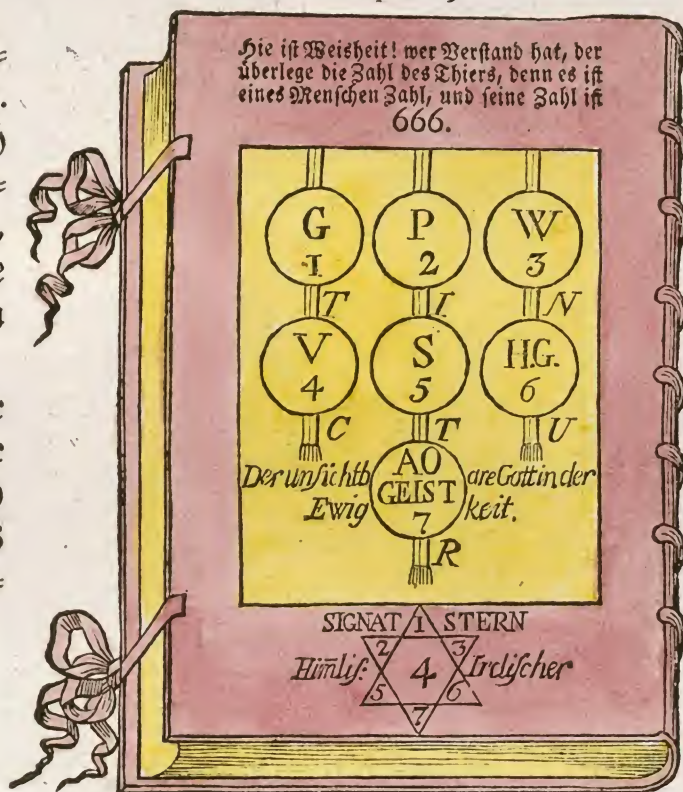 Hie ist Weisheit! wer Verstand hat, der
überlege die Zahl des Thiers, denn es ist
eines Menschen Zahl, und seine Zahl ist
666.
G P W
1 2 3
T I N
V S H.G.
4 5 6
C T U
AO
Der unsichtb GEIST are Gott in der
Ewig 7 keit.
R
SIGNAT 1 STERN
2 3
Him̄lis: 4 Irdischer
5 6
7